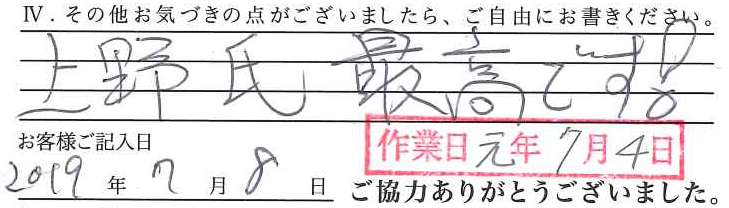 Ⅳ．その他お気づきの点がございましたら、ご自由にお書きください。
上野氏 最高です!
お客様ご記入日
作業日元年7月4日
2019年7月8日
ご協力ありがとうございました。